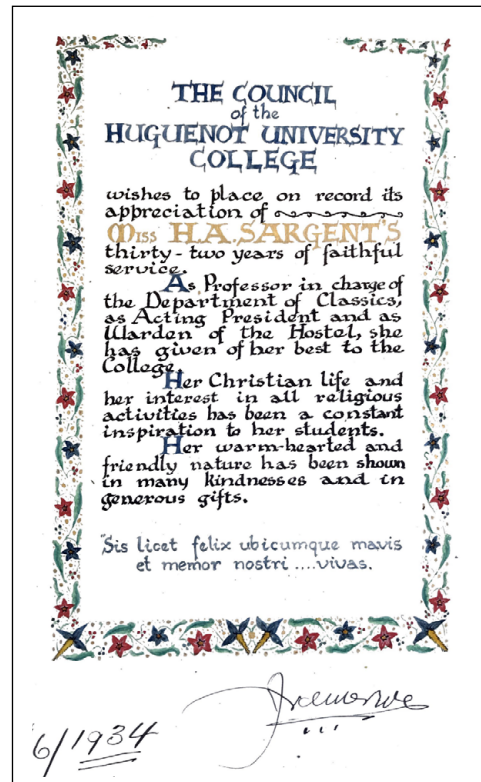 THE COUNCIL
of the
HUGUENOT UNIVERSITY
COLLEGE
wishes to place on record its
appreciation of
MISS H.A. SARGENT'S
thirty-two years of faithful
service.
As Professor in charge of
the Department of Classics,
as Acting President and as
Warden of the Hostel, she
has given of her best to the
College.
Her Christian life and
her interest in all religious
activities has been a constant
inspiration to her students.
Her warm-hearted and
friendly nature has been shown
in many kindnesses and in
generous gifts.
"Sis licet felix ubicumque mavis
et memor nostri ....vivas.
6/1934